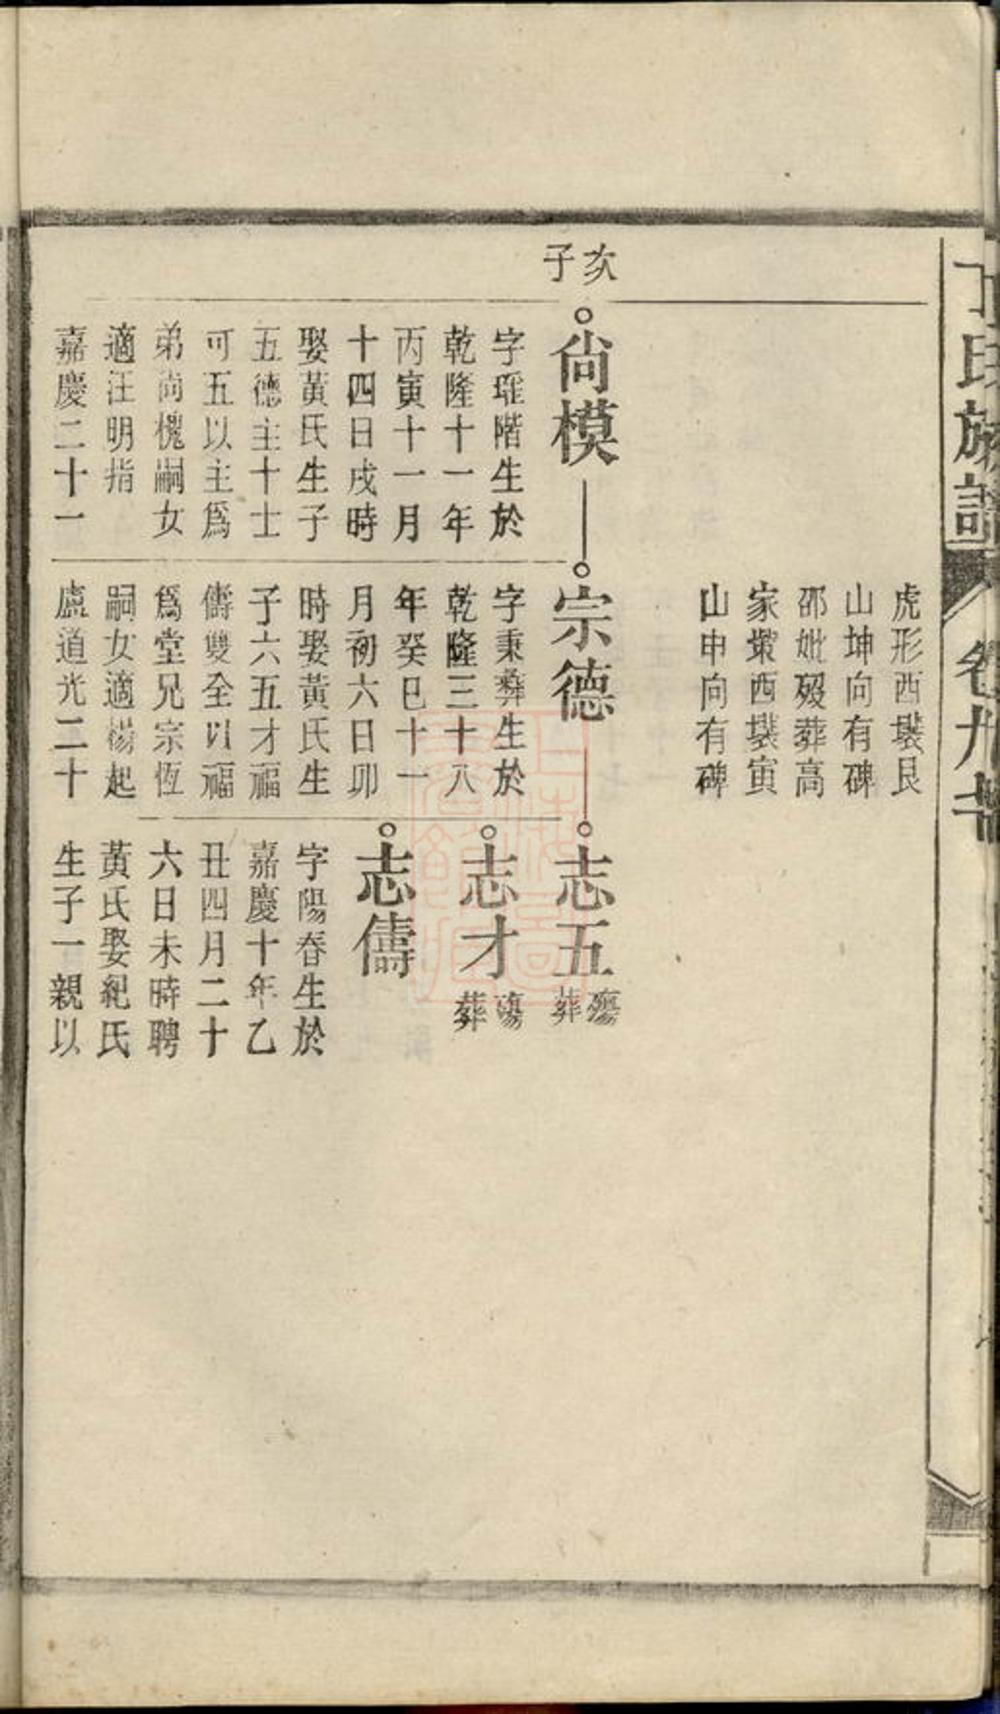 丁氏族譜
卷九
虎形西㘭艮
山坤向有碑
邵妣歿葬高
家㘭西㘭寅
山申向有碑
次子
尙模
字琟階生於
乾隆十一年
丙寅十一月
十四日戌時
娶黃氏生子
五德主十士
可五以主爲
弟尙槐嗣女
適汪明指
嘉慶二十一
宗德
字秉彝生於
乾隆三十八
年癸巳十一
月初六日卯
時娶黃氏生
子六五才福
儔雙全以福
爲堂兄宗恆
嗣女適楊起
盧道光二十
志五
殤葬
志才
殤葬
志儔
字陽春生於
嘉慶十年乙
丑四月二十
六日未時聘
黃氏娶紀氏
生子一親以